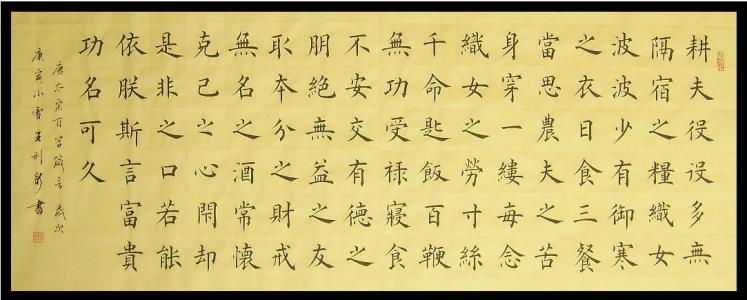 耕夫役役多無
隔宿之糧織女
波波少有御寒
之衣日食三餐
當思農夫之苦
身穿一縷每念
織女之勞寸絲
千命匙飯百鞭
無功受祿寢食
不安交有德之
朋絕無益之友
取本分之財戒
無名之酒常懷
克己之心閑却
是非之口若能
依朕斯言富貴
功名可久
唐太宗百字箴言歲次
庚寅小雪王利書